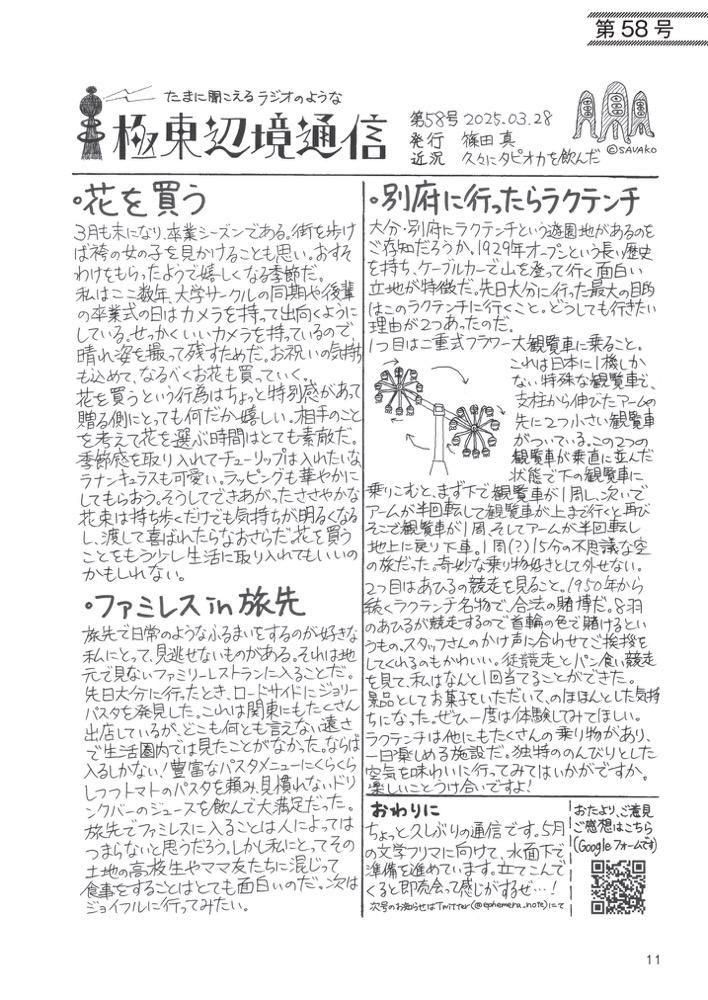 第58号
たまに聞こえるラジオのような
極東辺境通信
第58号 2025.03.28
発行 篠田 真
近況 久々にタピオカを飲んだ
©SAVAKO
•花を買う
3月も末になり、卒業シーズンである。街を歩け
ば袴の女の子を見かけることも思い。おすそ
わけをもらったようで嬉しくなる季節だ。
私はここ数年、大学サークルの同期や後輩
の卒業式の日はカメラを持って出向くように
している。せっかくいいカメラを持っているので、
晴れ姿を撮って残すためだ。お祝いの気持
も込めて、なるべくお花も買っていく。
花を買うという行為はちょっと特別感があって
贈る側にとっても何だか嬉しい。相手のこと
を考えて花を選ぶ時間はとても素敵だ。
季節感を取り入れてチューリップは入れたいな
ラナンキュラスも可愛い。ラッピングも華やかに
してもらおう。そうしてできあがったささやかな
花束は持ち歩くだけでも気持ちが明るくなる
し、渡して喜ばれたらなおさらだ。花を買う
ことをもう少し生活に取り入れてもいいの
かもしれない。
•ファミレスin旅先
旅先で日常のようなふるまいをするのが好きな
私にとって、見逃せないものがある。それは地
元で見ないファミリーレストランに入ることだ。
先日大分に行ったとき、ロードサイドにジョリー
パスタを発見した。これは関東にもたくさん
出店しているが、どこも何とも言えない遠さ
で生活圏内では見たことがなかった。ならば
入るしかない!豊富なパスタメニューにくらくら
しつつトマトのパスタを頼み、見慣れないドリ
ンクバーのジュースを飲んで大満足だった。
旅先でファミレスに入ることは人によっては
つまらないと思うだろう。しかし私にとってその
土地の高校生やママ友たちに混じって
食事をすることはとても面白いのだ。次は
ジョイフルに行ってみたい。
•別府に行ったらラクテンチ
大分・別府にラクテンチという遊園地があるのを
ご存知だろうか。1929年オープンという長い歴史
を持ち、ケーブルカーで山を登って行く面白い
立地が特徴だ。先日大分に行った最大の目的
はこのラクテンチに行くこと。どうしても行きたい
理由が2つあったのだ。
1つ目は二重式フラワー大観覧車に乗ること。
これは日本に1機しか
ない、特殊な観覧車で、
支柱から伸びたアームの
先に2つ小さい観覧車
がついている。この2つの
観覧車が垂直に並んだ
状態で下の観覧車に
乗りこむと、まず下で観覧車が1周し、次いで
アームが半回転して観覧車が上まで行くと再び
そこで観覧車が1周、そしてアームが半回転し
地上に戻り下車。1周(?)15分の不思議な空
の旅だった。奇妙な乗り物好きとして外せない。
2つ目はあひるの競走を見ること。1950年から
続くラクテンチ名物で、合法の賭博だ。8羽
のあひるが競走するので首輪の色で賭けるとい
うもの。スタッフさんのかけ声に合わせてご挨拶を
してくれるのもかわいい。徒競走とパン食い競走
を見て、私はなんと1回当てることができた。
景品としてお菓子をいただいて、のほほんとした気持
ちになった。ぜひ一度は体験してみてほしい。
ラクテンチは他にもたくさんの乗り物があり、
一日楽しめる施設だ。独特ののんびりとした
空気を味わいに行ってみてはいかがですか。
楽しいことうけ合いですよ!
おわりに
ちょっと久しぶりの通信です。5月
の文学フリマに向けて、水面下で
準備を進めています。立てこんで
くると即売会って感じがするぜ…!
次号のお知らせはTwitter(@ephemera_note)にて
おたより、ご意見
ご感想はこちら
(Googleフォームです)
11